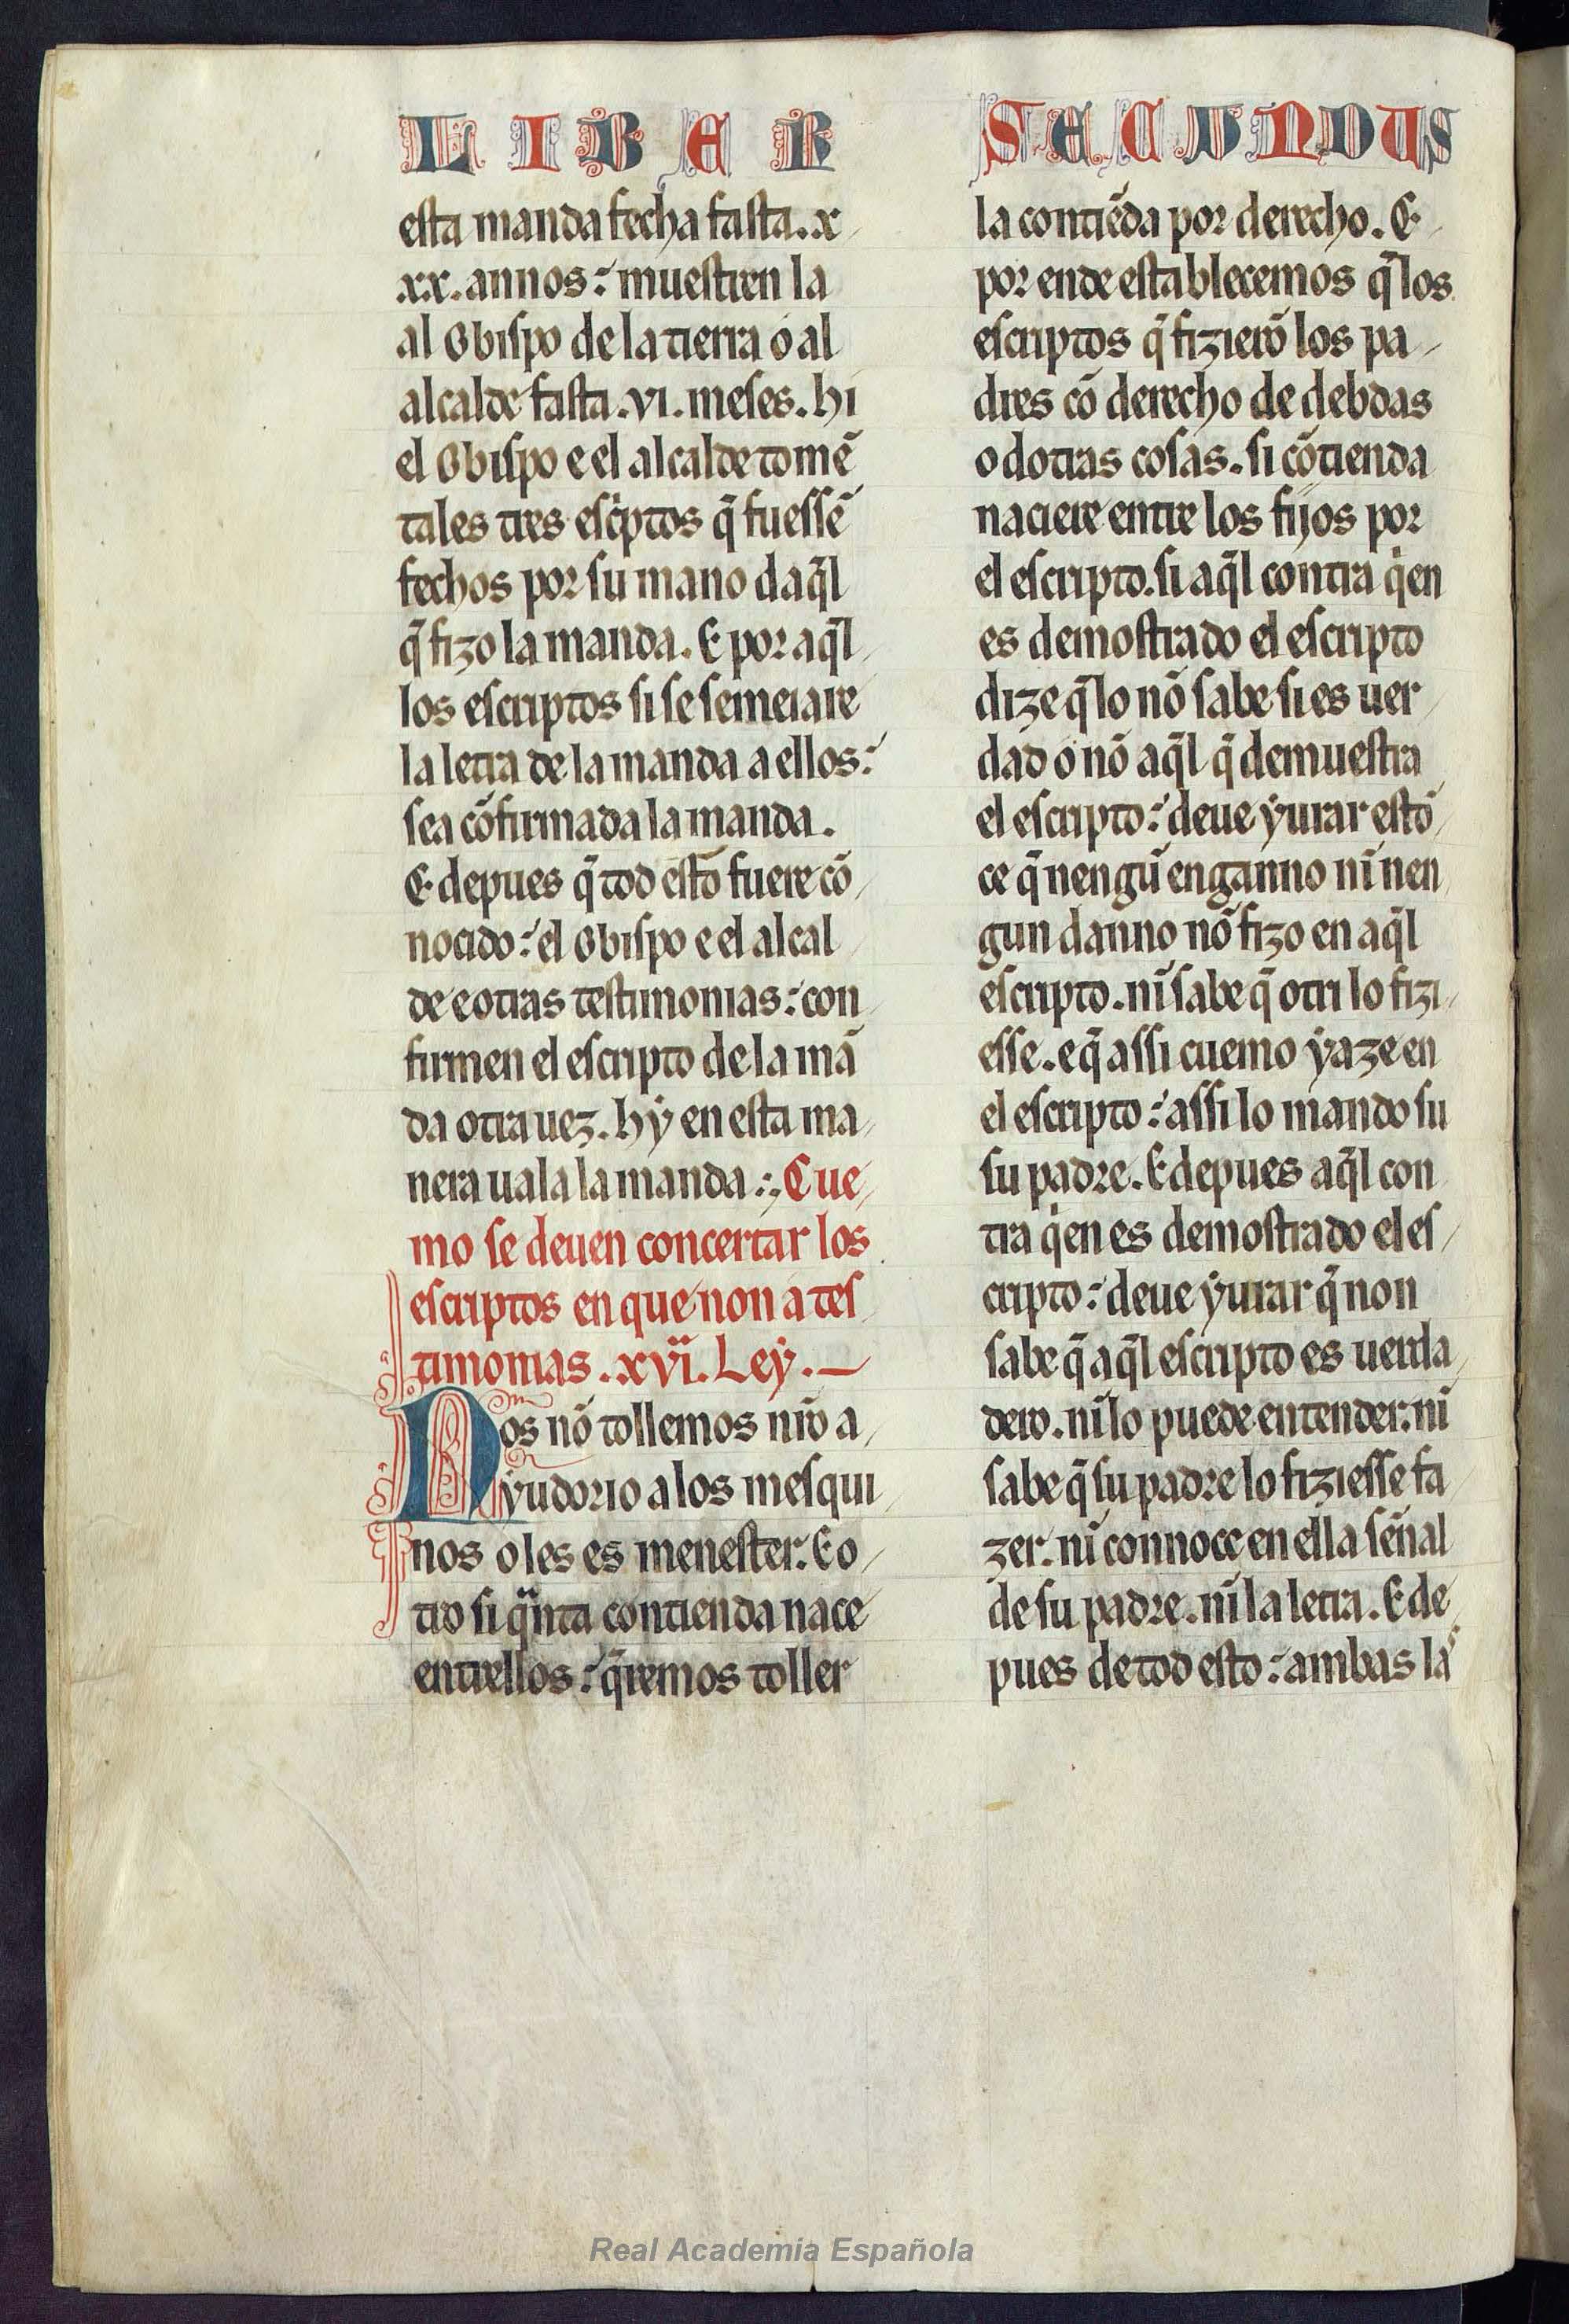 LIBER
esta manda fecha fasta .x
xx. annos: muestren la
al Obispo de la tierra o al
alcalde fasta .vi. meses. hi
el Obispo e el alcalde tomẽ
tales tres esc̍ptos q̃ fuessẽ
fechos por su mano daq̃l
q̃ fizo la manda. E por aq̃l
los escriptos si se semeiare
la letra de la manda a ellos:
sea cõfirmada la manda.
E depues q̃ tod esto fuere cõ
nocido: el Obispo e el alcal
de e otras testimonias: con
firmen el escripto de la mã
da otra uez. hẏ en esta ma
nera uala la manda. Cue
mo se deuen concertar los
escriptos en que non a tes
timonias .xvi. Leẏ.
Nos nõ tollemos nr̃o a
ẏudorio a los mesqui
nos o les es menester. E o
tro si q̃nta contienda nace
entrellos: q̃remos toller
SECUNDUS
la contiẽda por derecho. E
por ende establecemos q̃ los
escriptos q̃ fizierõ los pa
dres cõ derecho de debdas
o dotras cosas. si cõtienda
naciere entre los fijos por
el escripto. si aq̃l contra q̍en
es demostrado el escripto
dize q̃ lo nõ sabe si es uer
dad o nõ aq̃l q̃ demuestra
el escripto: deue ẏurar estõ
ce q̃ nengũ enganno nĩ nen
gun danno nõ fizo en aq̃l
escripto. nĩ sabe q̃ otri lo fizi
esse. e q̃ assi cuemo ẏaze en
el escripto: assi lo mando su
su padre. E depues aq̃l con
tra q̍en es demostrado el es
cripto: deue ẏurar q̃ non
sabe q̃ aq̃l escripto es uerda
dero. nĩ lo puede entender. nĩ
sabe q̃ su padre lo fiziesse fa
zer. nĩ connoce en ella sẽnal
de su padre. nĩ la letra. E de
pues de tod esto: ambas las
Real Academia Española